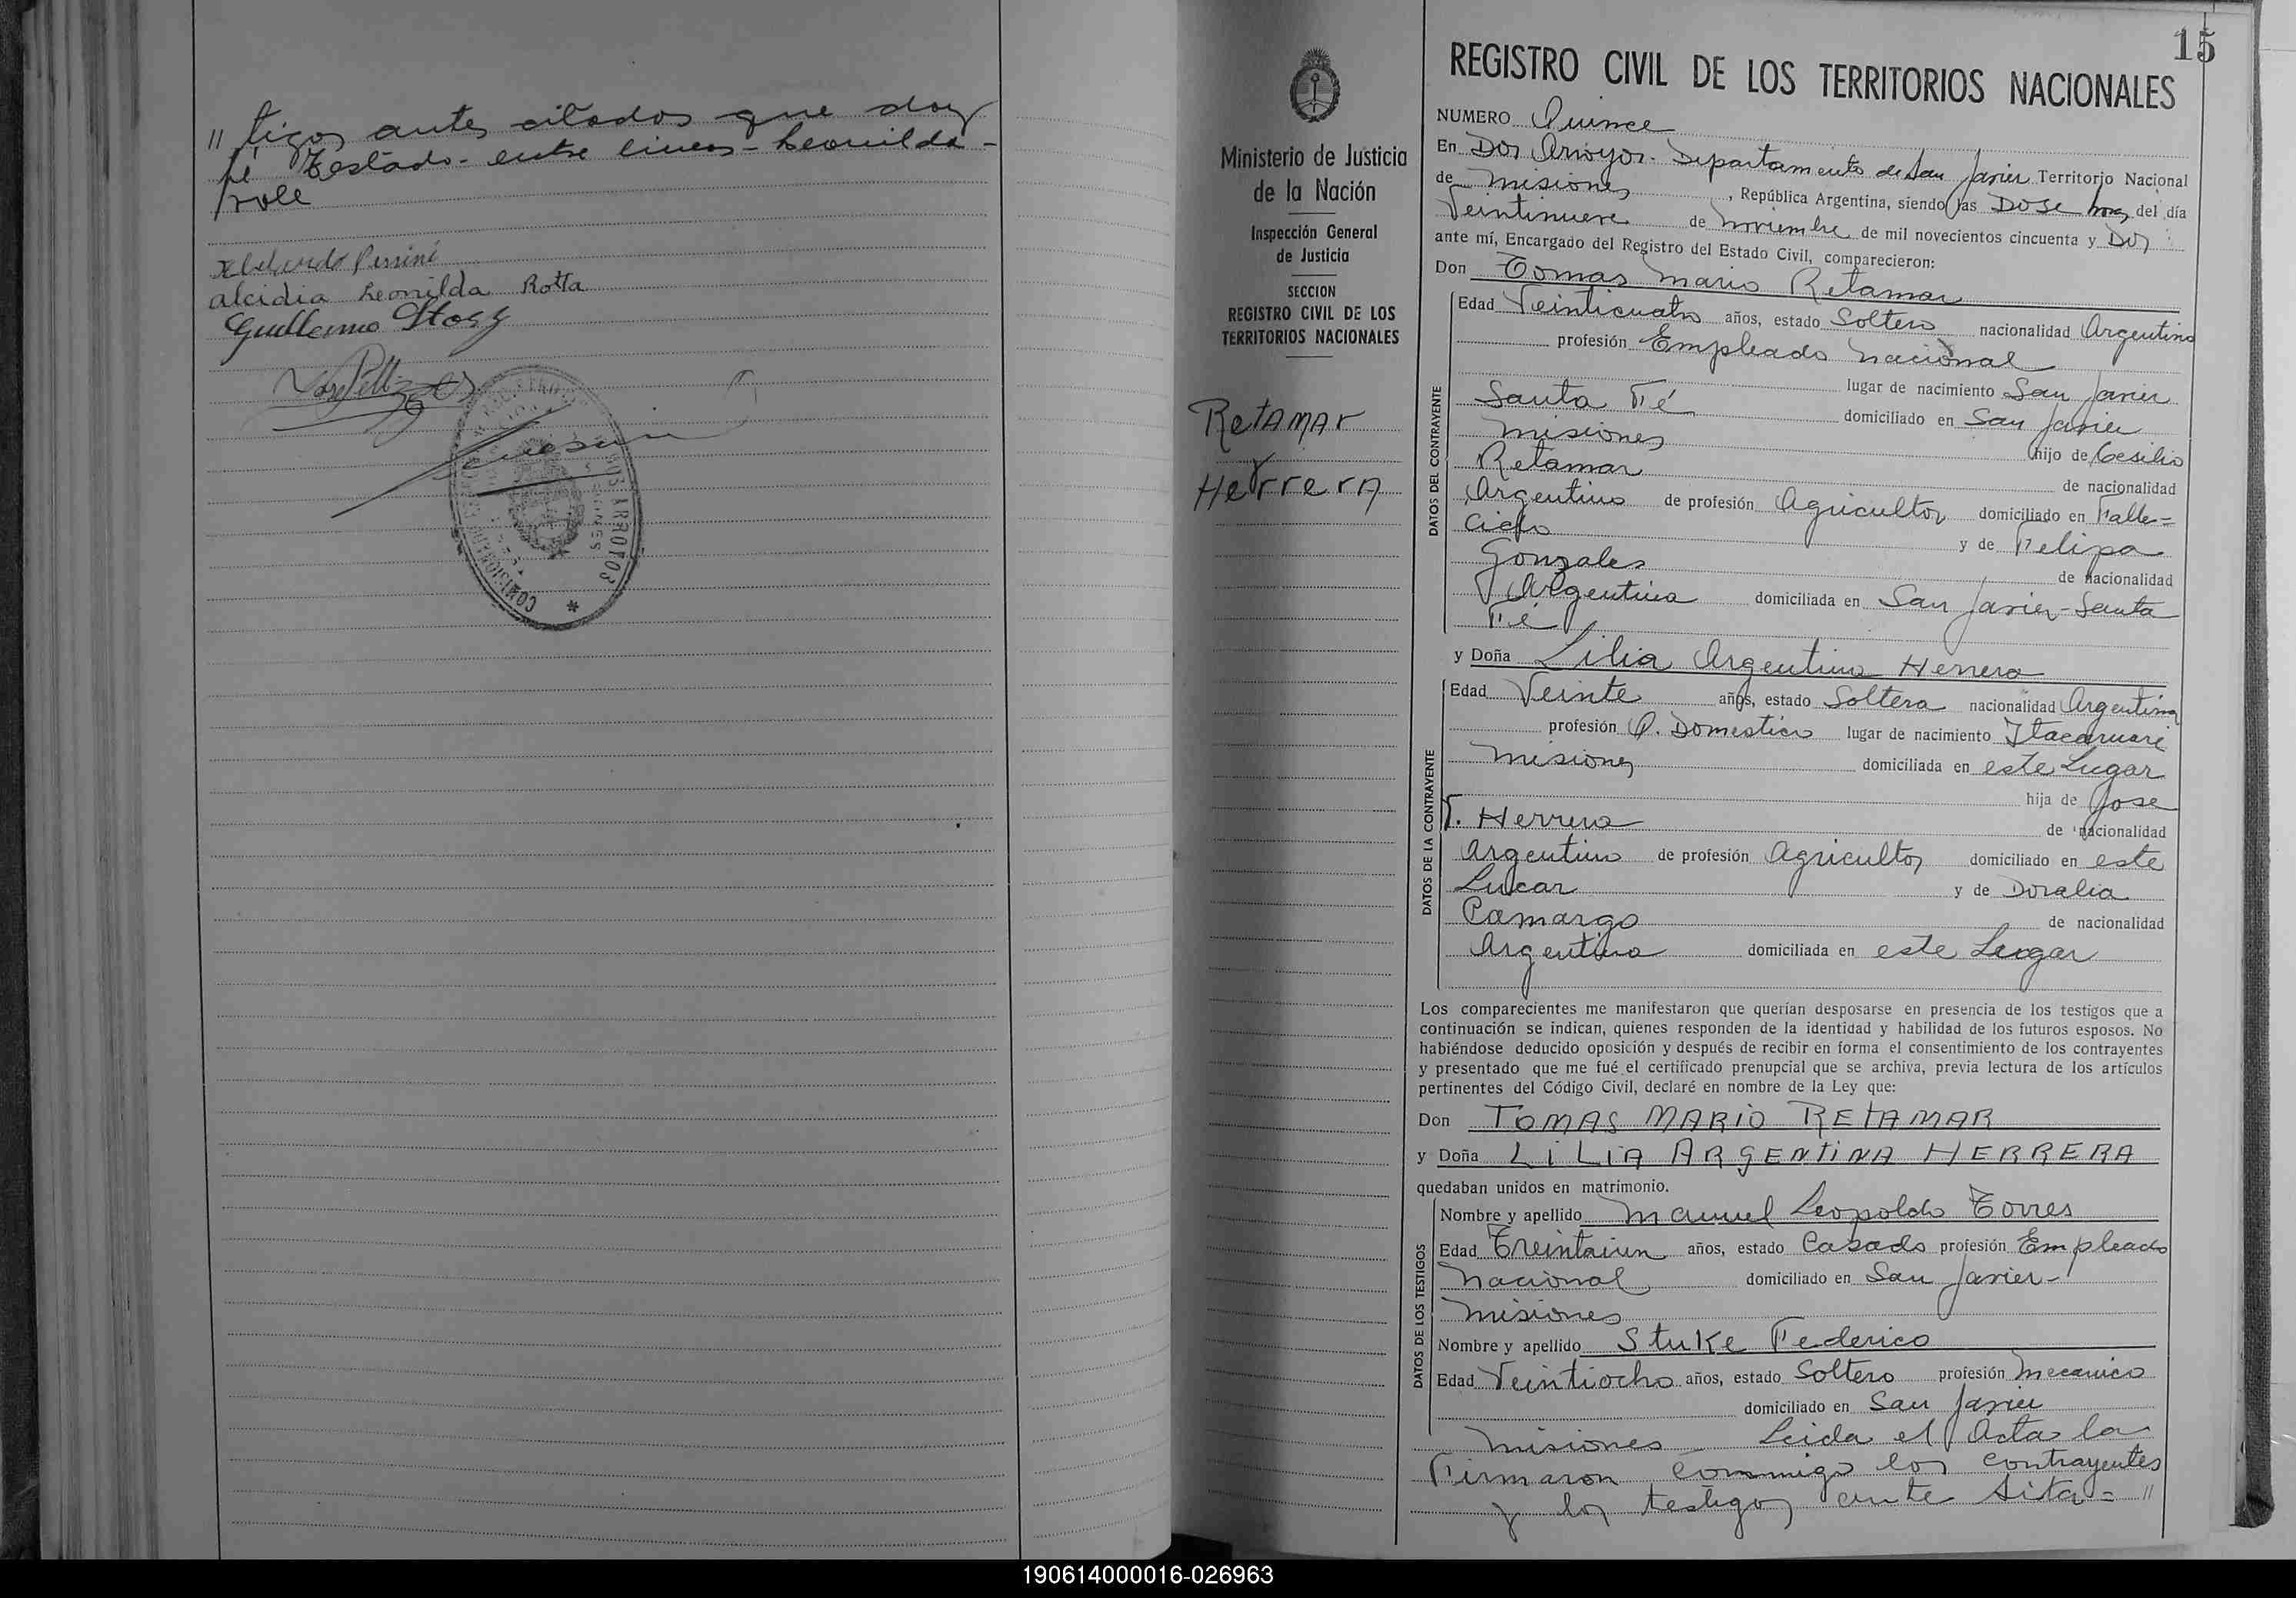 " tigos antes citados que doy
fé Testado - entre lineas - Leonilda -
vole
Abelardo Perrini
alcidia Leonilda Rotta
Guillermo
15
REGISTRO CIVIL DE LOS TERRITORIOS NACIONALES
Ministerio de Justicia
de la Nación
Inspección General
de Justicia
SECCION
REGISTRO CIVIL DE LOS
TERRITORIOS NACIONALES
Retamar
Herrera
NUMERO Quince
En Dos Arroyos - Departamento de San Javier Territorio Nacional
de Misiones, República Argentina, siendo las Dose horas del día
Veintinueve de Noviembre de mil novecientos cincuenta y Dos
ante mí, Encargado del Registro del Estado Civil, comparecieron:
Don Tomas Mario Retamar
DATOS DEL CONTRAYENTE
Edad Veinticuatro años, estado Soltero nacionalidad Argentino
profesión Empleado Nacional
lugar de nacimiento San Javier
Santa Fé domiciliado en San Javier
Misiones hijo de Cesilio
Retamar de nacionalidad
Argentino de profesión Agricultor domiciliado en Falle=
cido y de Felipa
Gonzales de nacionalidad
Argentina domiciliada en San Javier - Santa
Fé
y Doña Lilia Argentina Herrera
DATOS DE LA CONTRAYENTE
Edad Veinte años, estado Soltera nacionalidad Argentina
profesión Q. Domestico lugar de nacimiento Itacaruaré
Misiones domiciliada en este Lugar
hija de Jose
T. Herrera de nacionalidad
Argentino de profesión Agricultor domiciliado en este
Lugar y de Doralia
Camargo de nacionalidad
Argentina domiciliada en este Lugar
Los comparecientes me manifestaron que querían desposarse en presencia de los testigos que a
continuación se indican, quienes responden de la identidad y habilidad de los futuros esposos. No
habiéndose deducido oposición y después de recibir en forma el consentimiento de los contrayentes
y presentado que me fué el certificado prenupcial que se archiva, previa lectura de los artículos
pertinentes del Código Civil, declaré en nombre de la Ley que:
Don TOMAS MARIO RETAMAR
y Doña LILIA ARGENTINA HERRERA
quedaban unidos en matrimonio.
DATOS DE LOS TESTIGOS
Nombre y apellido Manuel Leopoldo Torres
Edad Treintaiun años, estado Casado profesión Empleado
Nacional domiciliado en San Javier -
Misiones
Nombre y apellido Stuke Federico
Edad Veintiocho años, estado Soltero profesión Mecanico
domiciliado en San Javier
Misiones Leida el Acta la
Firmaron conmigo los contrayentes
y los testigos ante sita = "
190614000016-026963